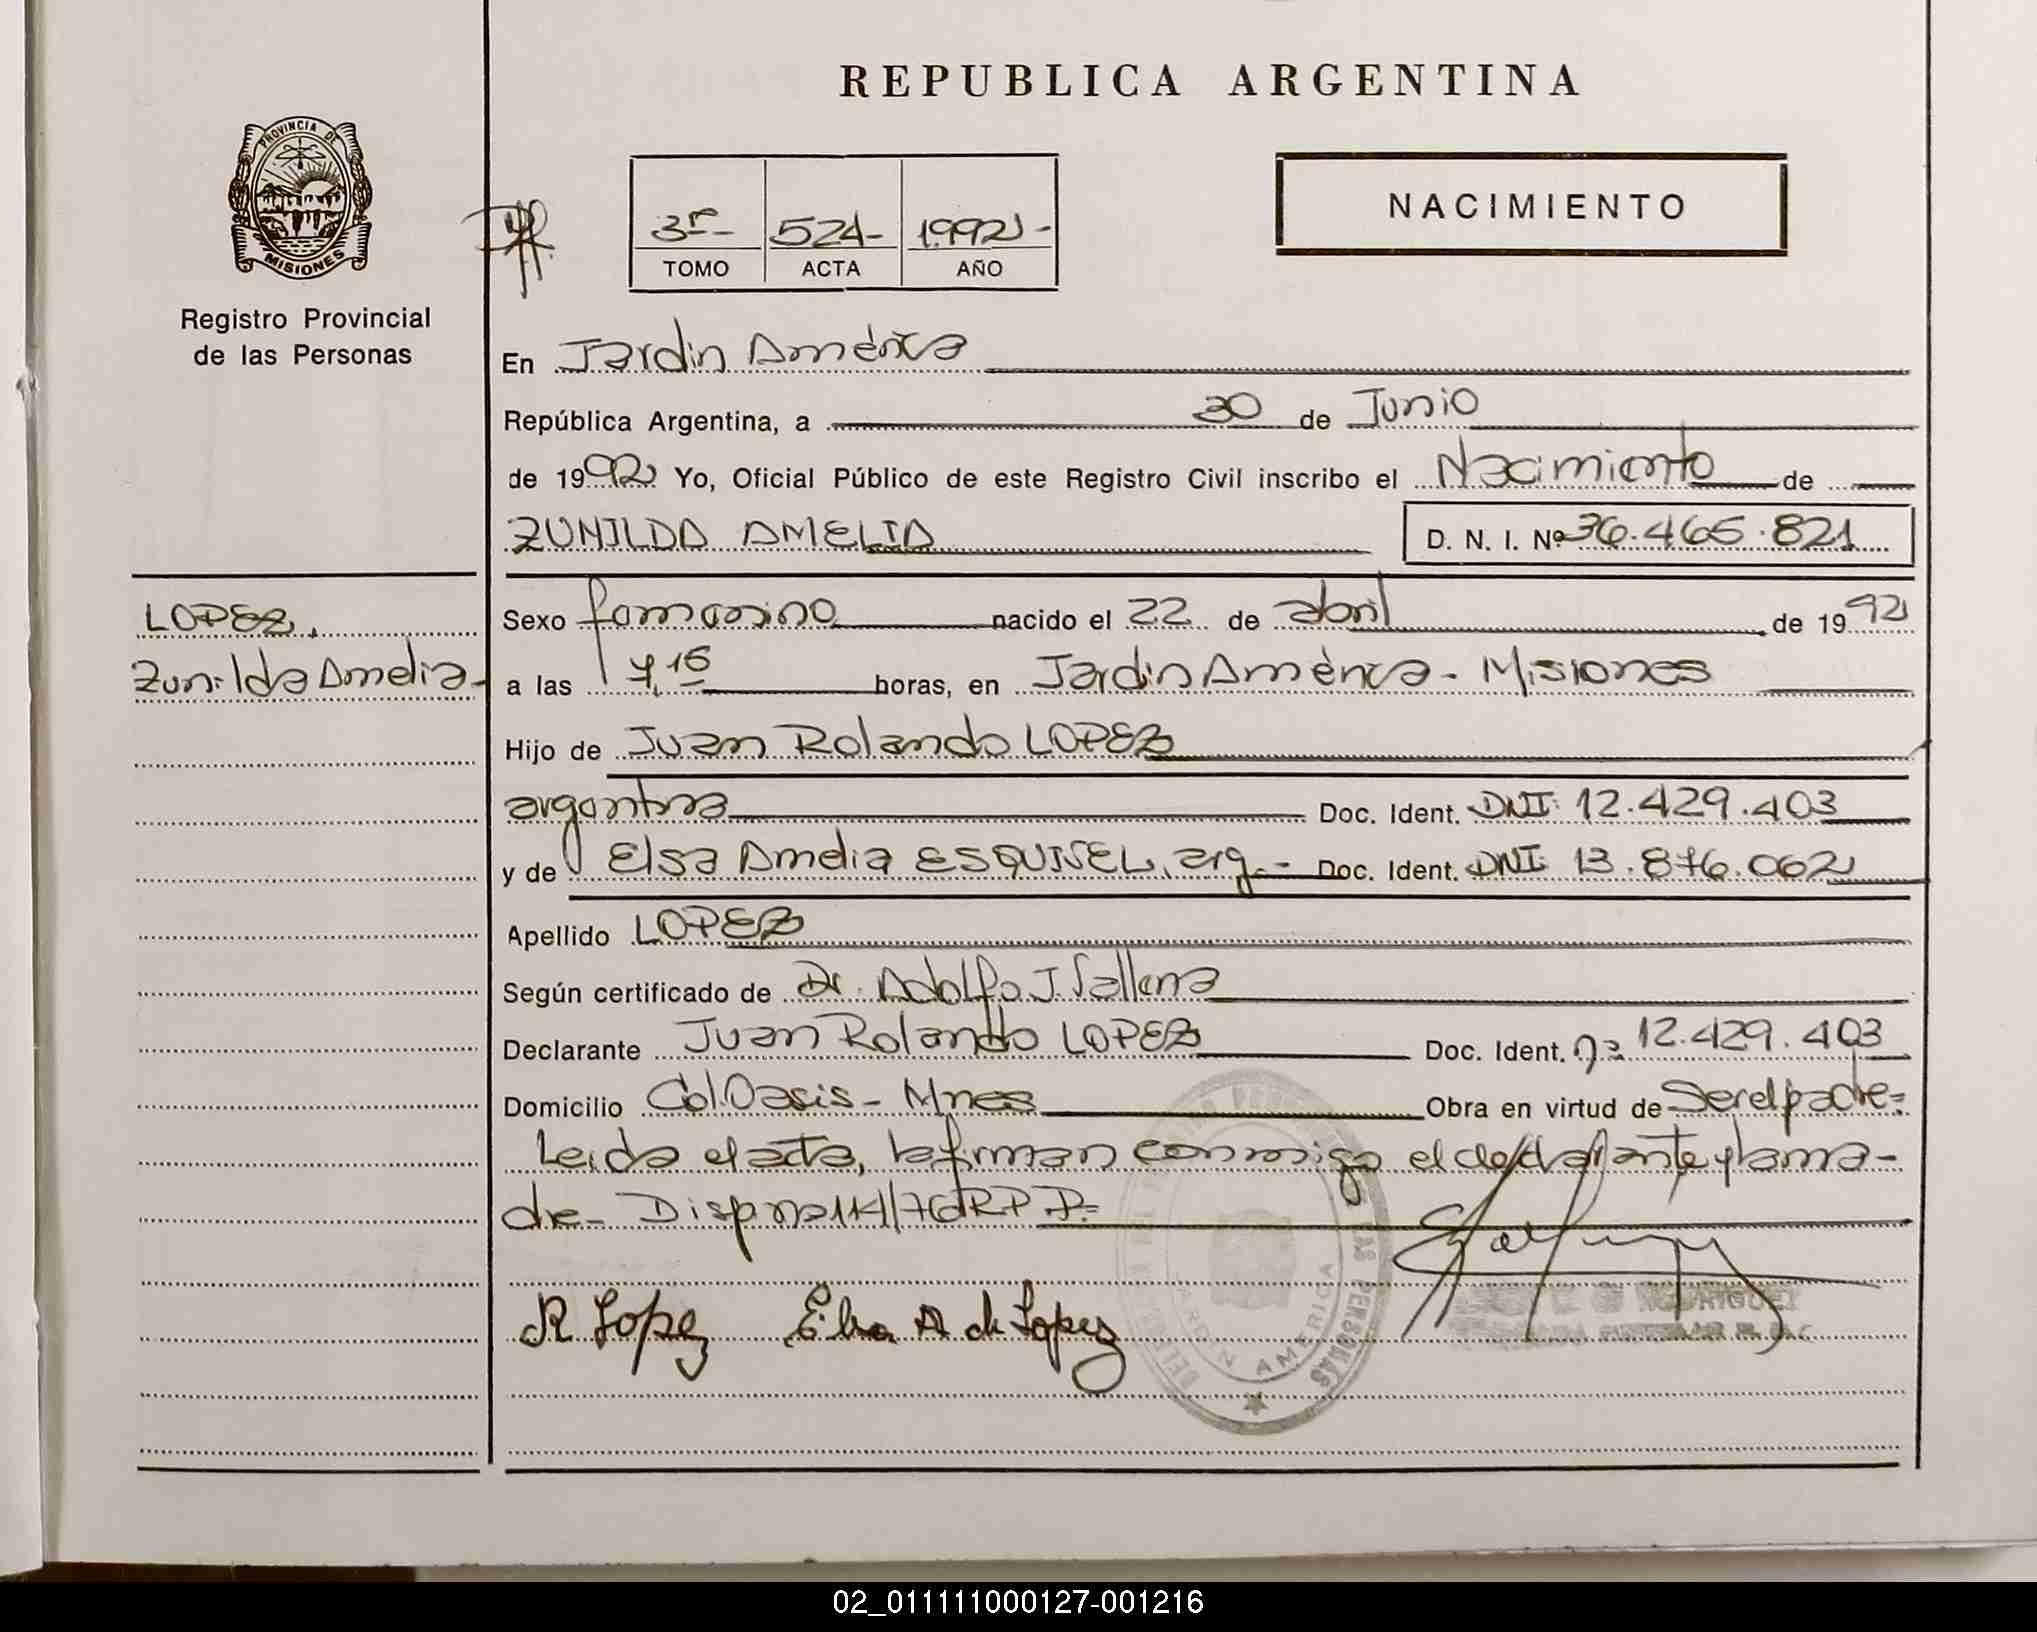 REPUBLICA ARGENTINA
PROVINCIA DE
MISIONES
Registro Provincial
de las Personas
3r- 524- 1992-
TOMO ACTA AÑO
NACIMIENTO
En Jardin América
República Argentina, a 30 de Junio
de 1992 Yo, Oficial Público de este Registro Civil inscribo el Nacimiento de
ZUNILDA AMELIA D. N. I. Nº 36.465.821
LOPEZ,
Zunilda Amelia-
Sexo femenino nacido el 22 de abril de 1992
a las 4,15 horas, en Jardin América - Misiones
Hijo de Juan Rolando LOPEZ
argentina Doc. Ident. DNI: 12.429.403
y de Elsa Amelia ESQUIVEL, arg.- Doc. Ident. DNI: 13.876.062
Apellido LOPEZ
Según certificado de Dr. Adolfo J.
Declarante Juan Rolando LOPEZ Doc. Ident. nº 12.429.403
Domicilio Col. Oasis - Mnes Obra en virtud de Ser el padre=
Leida el acta, la firman conmigo el declarante y la ma-
dre-
R Lopez Elsa A de Lopez
PERSONAS
JARDIN AMERICA
RODRIGUEZ
02_011111000127-001216